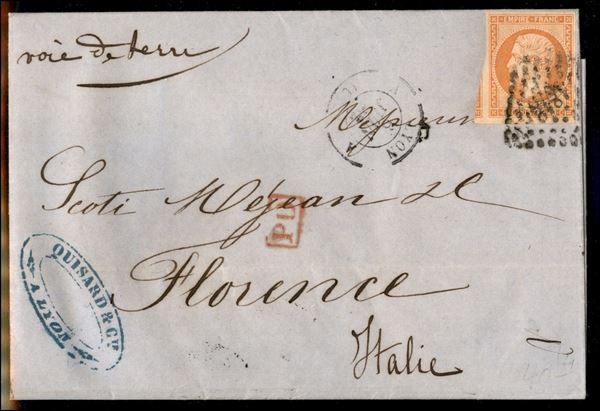 voie de terre
EMPIRE FRANC
LYON
Messieurs
Scoti Mejean & C
PD
QUISARD & Cie
A LYON
Florence
Italie